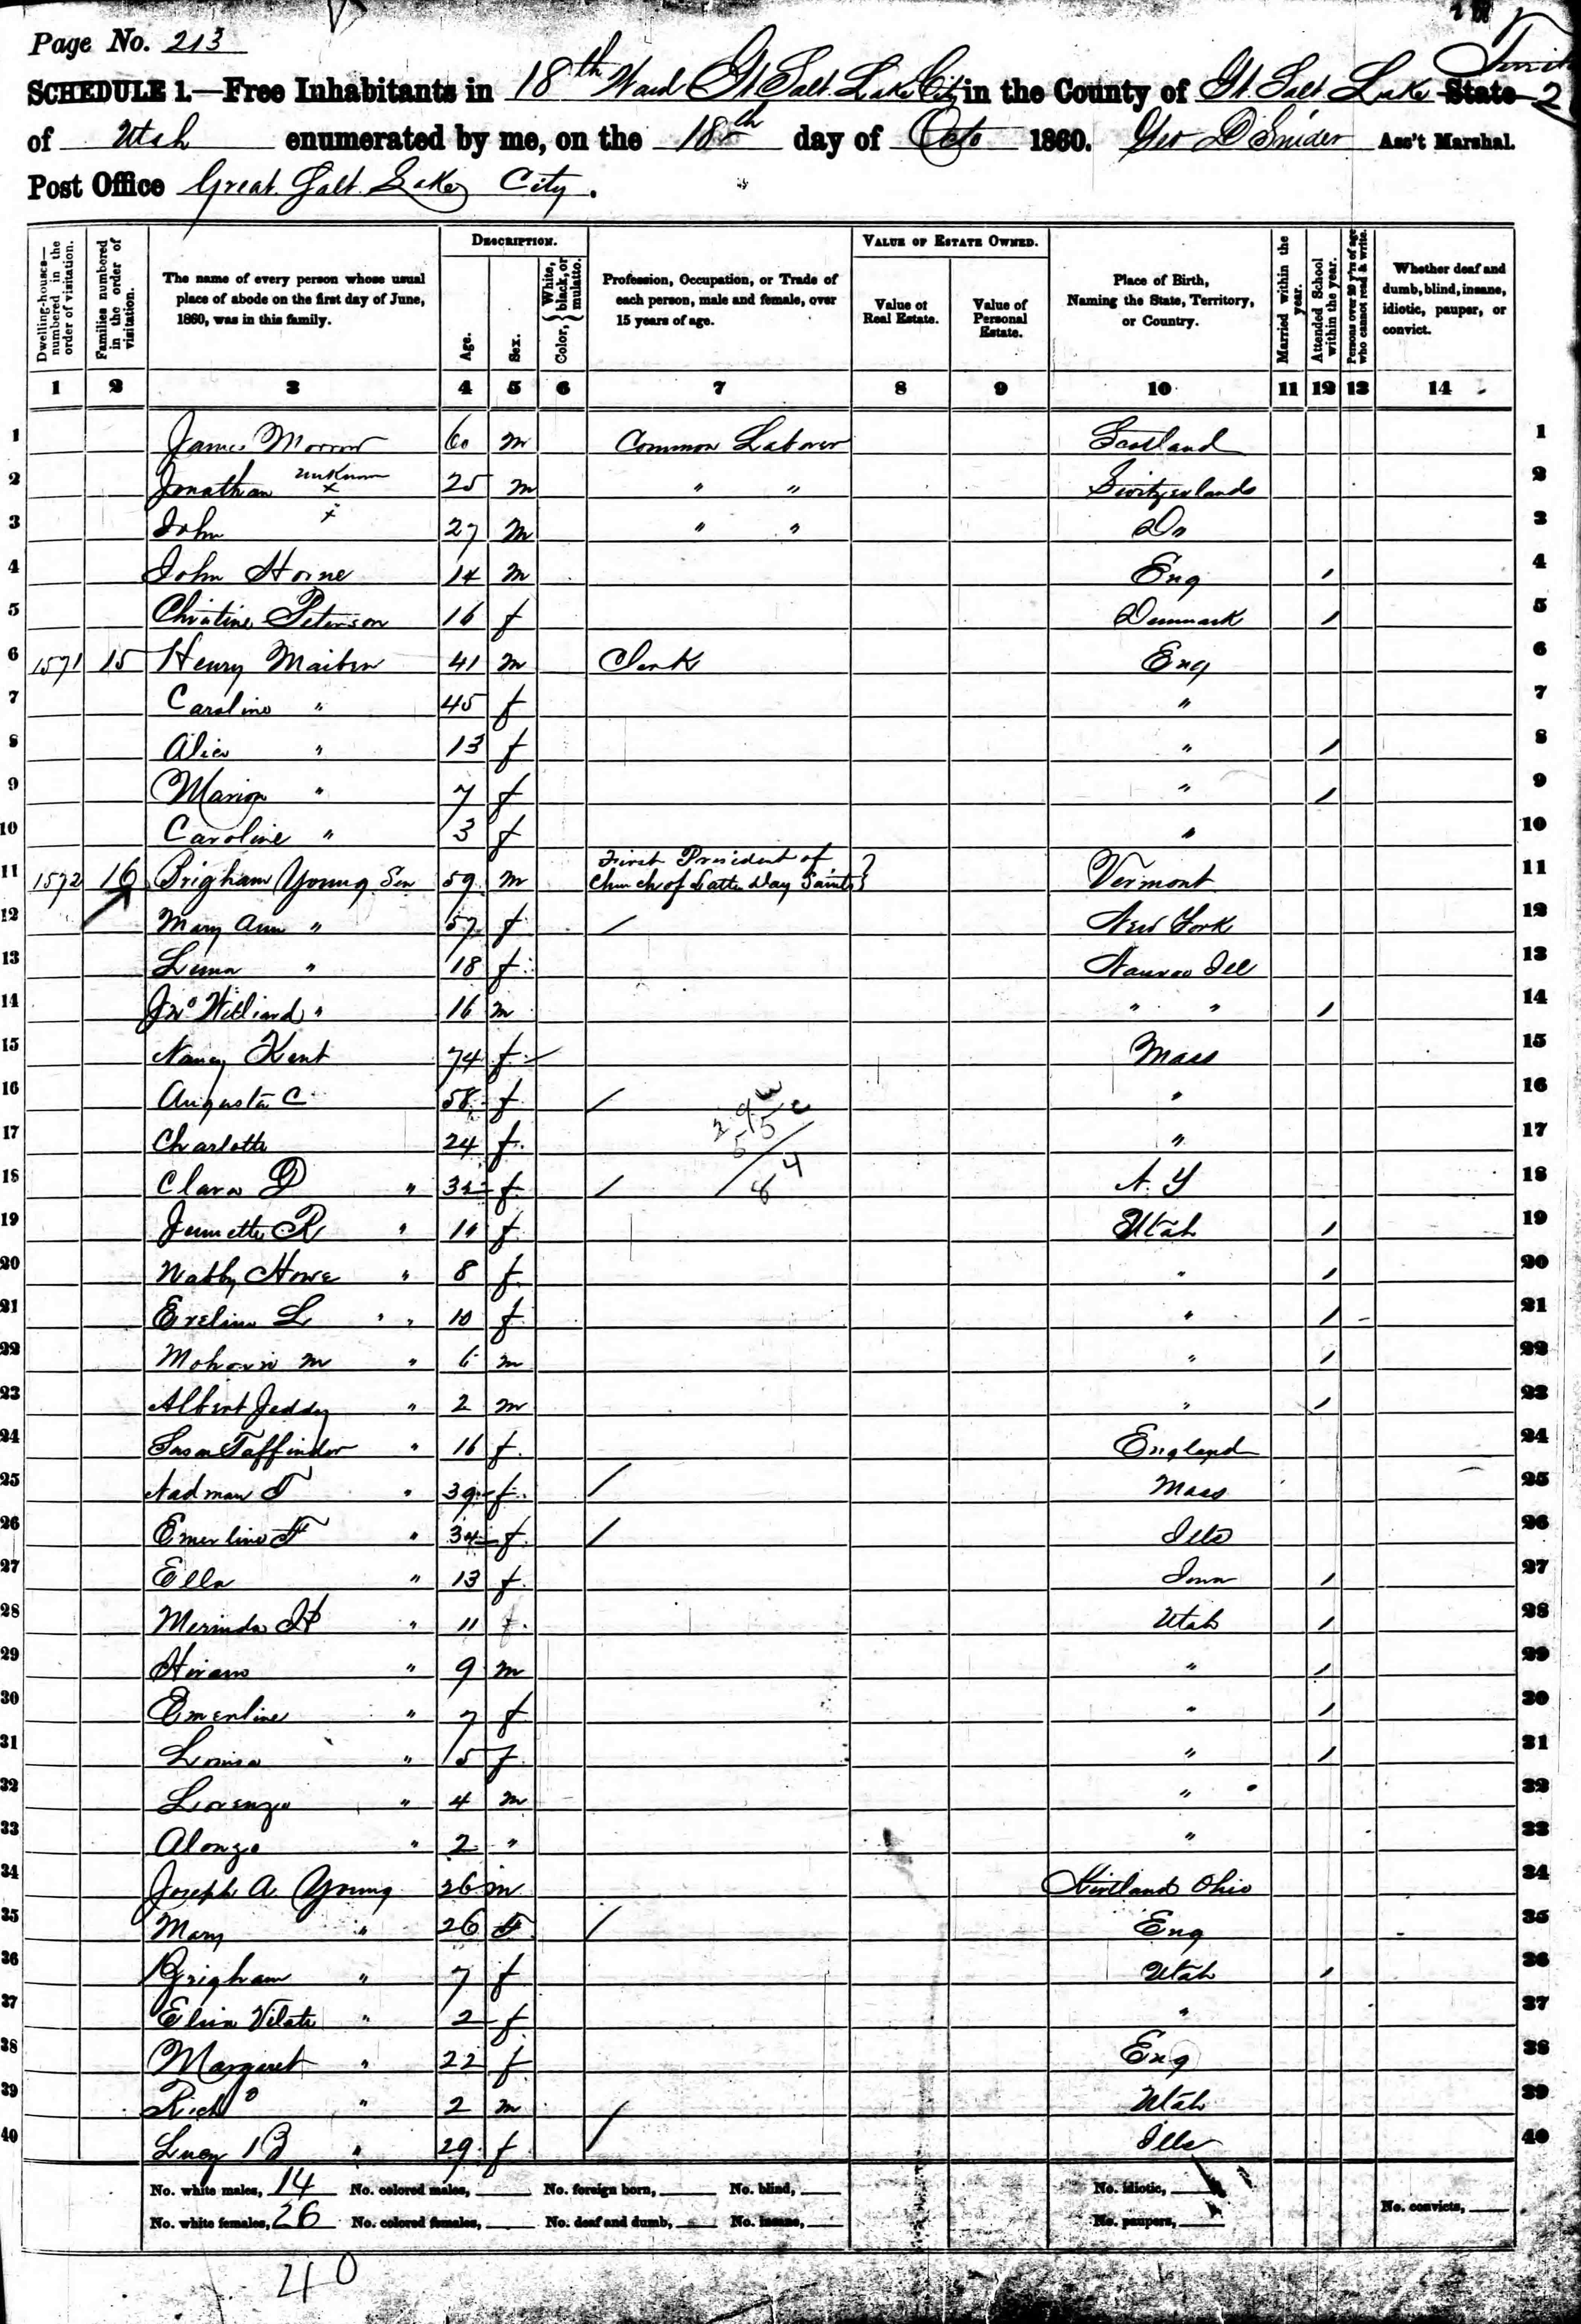 Page No. 213
SCHEDULE 1.—Free Inhabitants in 18th Ward Gt Salt Lake City in the County of Gt. Salt Lake State
of Utah enumerated by me, on the 18th day of Octo 1860. Geo D Snider Ass't Marshal.
Post Office Great Salt Lake City.
Dwelling-houses—numbered in the order of visitation.
Families numbered in the order of visitation.
The name of every person whose usual place of abode on the first day of June, 1860, was in this family.
DESCRIPTION.
Age.
Sex.
Color, { White, black, or mulatto.
Profession, Occupation, or Trade of each person, male and female, over 15 years of age.
VALUE OF ESTATE OWNED.
Value of Real Estate.
Value of Personal Estate.
Place of Birth, Naming the State, Territory, or Country.
Married within the year.
Attended School within the year.
Persons over 20 y'rs of age who cannot read & write.
Whether deaf and dumb, blind, insane, idiotic, pauper, or convict.
1 2 3 4 5 6 7 8 9 10 11 12 13 14
1 James Morrow 60 m Common Laborer Scotland 1
2 Jonathan unknown x 25 m " " Switzerlands 2
3 John x 27 m " " Do 3
4 John Horne 14 m Eng / 4
5 Christine Peterson 16 f Denmark / 5
6 1571 15 Henry Maiben 41 m Clerk Eng 6
7 Caroline " 45 f " 7
8 Alice " 13 f " / 8
9 Marion " 7 f " / 9
10 Caroline " 3 f " 10
11 1572 16 Brigham Young Sen 59 m First President of Church of Latter Day Saints } Vermont 11
12 Mary Ann " 57 f / New York 12
13 Luna " 18 f Nauvoo Ill 13
14 Jno Williard " 16 m " " / 14
15 Nancy Kent 74 f Mass 15
16 Augusta C 58 f / " 16
17 Charlotte 24 f " 17
18 Clara D " 32 f / N. Y 18
19 Jennette R " 10 f Utah / 19
20 Nabby Howe " 8 f " / 20
21 Eveline L " " 10 f " / 21
22 " 6 m " / 22
23 Albert Jeddy " 2 m " / 23
24 Susan Taffindor " 16 f England 24
25 Nadman T " 39 f / Mass 25
26 Emerline F " 34 f / Ills 26
27 Ella " 13 f Iowa / 27
28 Merinda H " 11 f Utah / 28
29 Hiram " 9 m " / 29
30 Emerline " 7 f " / 30
31 Louisa " 5 f " / 31
32 Lorenzo " 4 m " 32
33 Alonzo " 2 " " 33
34 Joseph A. Young 26 m Kirtland Ohio 34
35 Mary " 26 F / Eng 35
36 Brigham " 7 f Utah / 36
37 Vilate " 2 f " 37
38 Margaret " 22 f Eng 38
39 Richd " 2 m Utah 39
40 Lucy B " 29 f / Ills 40
No. white males, 14 No. colored males, No. foreign born, No. blind, No. idiotic,
No. white females, 26 No. colored females, No. deaf and dumb, No. insane, No. paupers, No. convicts,
40